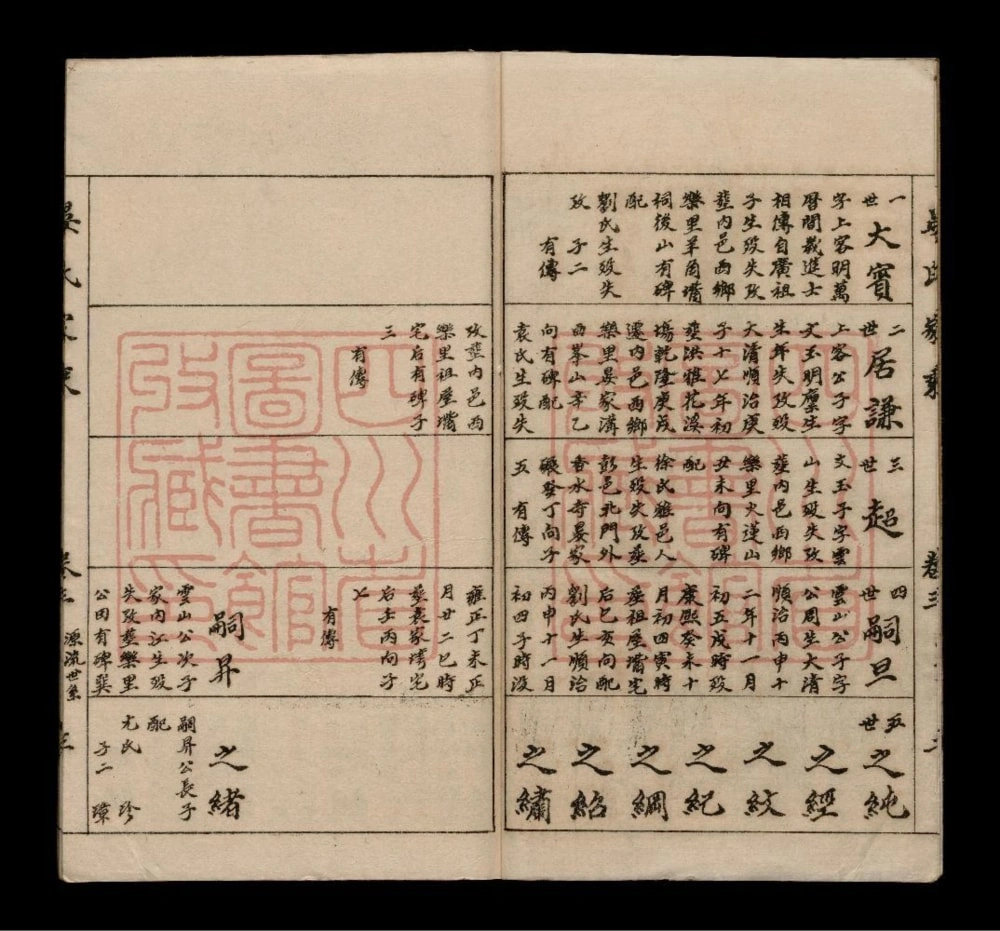 晏氏家乘
卷三
一世
大賓
字上客明萬
曆間歲進士
相傳自廣祖
子生歿失攷
塟內邑西鄉
樂里羊角嘴
祠後山有碑
配
劉氏生歿失
攷 子二
有傳
二世
居謙
上客公子字
文玉明廩生
生年失攷歿
大清順治庚
子十七年初
塟洪雅花溪
塲乾隆庚戌
遷內邑西鄉
樂里晏家溝
西峯山辛乙
向有碑配
袁氏生歿失
攷塟內邑西
樂里祖屋嘴
宅后有碑子
三
有傳
三世
超
文玉子字雲
山生歿失攷
塟內邑西鄉
樂里火蓮山
丑未向有碑
配
徐氏雅邑人
生歿失攷塟
彭邑北門外
香水寺晏家
碾癸丁向子
五 有傳
四世
嗣旦
雲山公子字
公周生大清
順治丙申十
二年十一月
初五戌時歿
康熙癸未十
月初四寅時
塟祖屋嘴宅
后巳亥向配
劉氏生順治
丙申十一月
初四子時沒
雍正丁未正
月廿二巳時
塟袁家塆宅
右壬丙向子
七
有傳
嗣昇
雲山公次子
家內江生歿
失攷塟樂里
公田有碑巽
五世
之純
之經
之紋
之紀
之綱
之紹
之繡
之緒
嗣昇公長子
配
尤氏
子二
珍
璋
晏氏家乘
卷三
源流世系
三